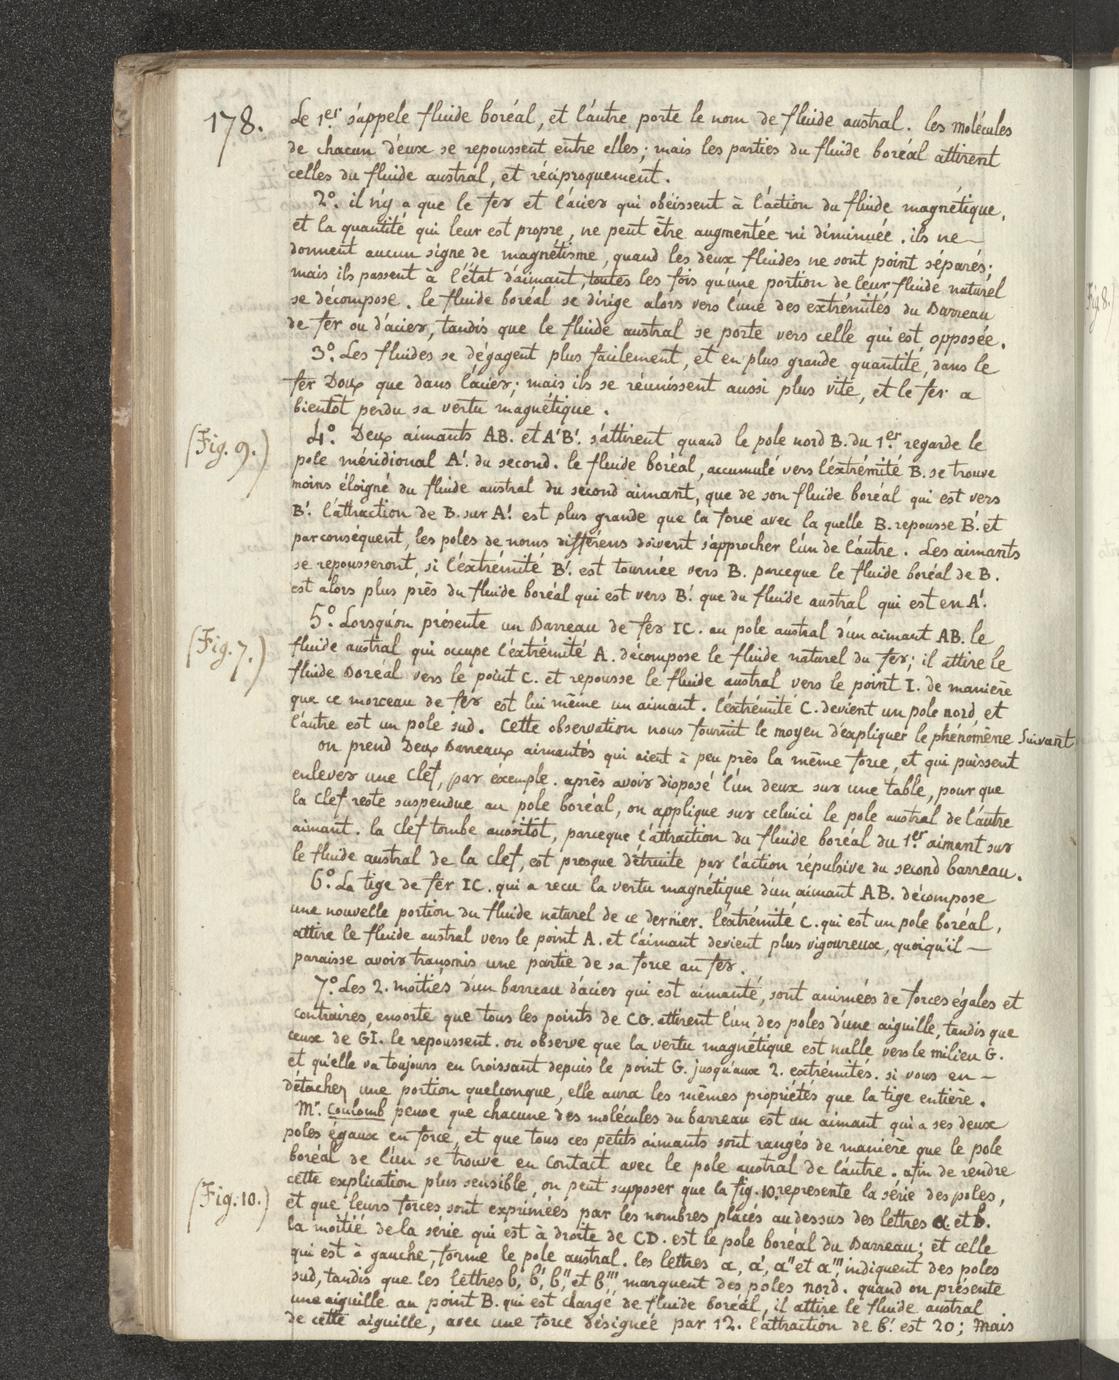 178.
Le 1er s'appele fluide boréal, et l'autre porte le nom de fluide austral. les molécules
de chacun d'eux se repoussent entre elles; mais les parties du fluide boréal attirent
celles du fluide austral, et réciproquement.
2º. il n'y a que le fer et l'acier qui obéissent à l'action du fluide magnétique,
et la quantité qui leur est propre, ne peut être augmentée ni diminuée. ils ne
donnent aucun signe de magnétisme, quand les deux fluides ne sont point séparés;
mais ils passent à l'état d'aimant, toutes les fois qu'une portion de leur fluide naturel
se décompose. le fluide boréal se dirige alors vers l'une des extrémités du Barreau
de fer ou d'acier, tandis que le fluide austral se porte vers celle qui est opposée.
3º. Les fluides se dégagent plus facilement, et en plus grande quantité, dans le
fer Doux que dans l'acier; mais ils se réunissent aussi plus vite, et le fer a
bientôt perdu sa vertu magnétique.
(Fig. 9.)
4º. Deux aimants AB. et A'B'. s'attirent quand le pole nord B. du 1er. regarde le
pole méridional A'. du second. le fluide boréal, accumulé vers l'éxtrémité B. se trouve
moins éloigné du fluide austral du second aimant, que de son fluide boréal qui est vers
B'. l'attraction de B. sur A'. est plus grande que la force avec la quelle B. repousse B'. et
par conséquent, les poles de noms différens doivent s'approcher l'un de l'autre. Les aimants
se repousseront, si l'éxtrémité B'. est tournée vers B. parceque le fluide boréal de B.
est alors plus près du fluide boréal qui est vers B'. que du fluide austral qui est en A'.
(Fig. 7.)
5º. Lorsqu'on présente un Barreau de fer IC. au pole austral d'un aimant AB. le
fluide austral qui occupe l'éxtrémité A. décompose le fluide naturel du fer; il attire le
fluide Boréal vers le point C. et repousse le fluide austral vers le point I. de manière
que ce morceau de fer est lui même un aimant. l'éxtrémité C. devient un pole nord et
l'autre est un pole sud. Cette observation nous fournit le moyen d'expliquer le phénomène Suivant
on prend Deux Barreaux aimantés qui aient à peu près la même force, et qui puissent
enlever une Clef, par éxemple. après avoir disposé l'un deux sur une table, pour que
la Clef reste suspendue au pole boréal, on applique sur celui ci le pole austral de l'autre
aimant. la Clef tombe aussitôt, parceque l'attraction du fluide boréal du 1er. aimant sur
le fluide austral de la Clef, est presque détruite par l'action répulsive du second barreau.
6º. La tige de fer IC. qui a recu la vertu magnétique d'un aimant AB. décompose
une nouvelle portion du fluide naturel de ce dernier. l'éxtrémité C. qui est un pole boréal,
attire le fluide austral vers le point A. et l'aimant devient plus vigoureux, quoiqu'il
paraisse avoir transmis une partie de sa force au fer.
7º. Les 2. moitiés d'un barreau d'acier qui est aimanté, sont animées de forces égales et
contraires, ensorte que tous les points de CG. attirent l'un des poles d'une aiguille, tandis que
ceux de GI. le repoussent. on observe que la vertu magnétique est nulle vers le milieu G.
et qu'elle va toujours en croissant depuis le point G. jusqu'aux 2. extrémités. si vous en
détachez une portion quelconque, elle aura les mêmes propriétés que la tige entière.
Mr. Coulomb pense que chacune des molécules du barreau est un aimant qui a ses deux
poles égaux en force, et que tous ces petits aimants sont rangés de manière que le pole
boréal de l'un se trouve en contact avec le pole austral de l'autre. afin de rendre
(Fig. 10.)
cette explication plus sensible, on peut supposer que la fig. 10. represente la série des poles,
et que leurs forces sont exprimées par les nombres placés au dessus des lettres a. et b.
la moitié de la série qui est à droite de CD. est le pole boréal du Barreau; et celle
qui est à gauche, forme le pole austral. les lettres a, a', a'' et a''', indiquent des poles
sud, tandis que les lettres b, b', b'', et b''', marquent des poles nord. quand on présente
une aiguille au point B. qui est chargé de fluide boréal, il attire le fluide austral
de cette aiguille, avec une force désignée par 12. l'attraction de b'. est 20; Mais
Fig 8.)